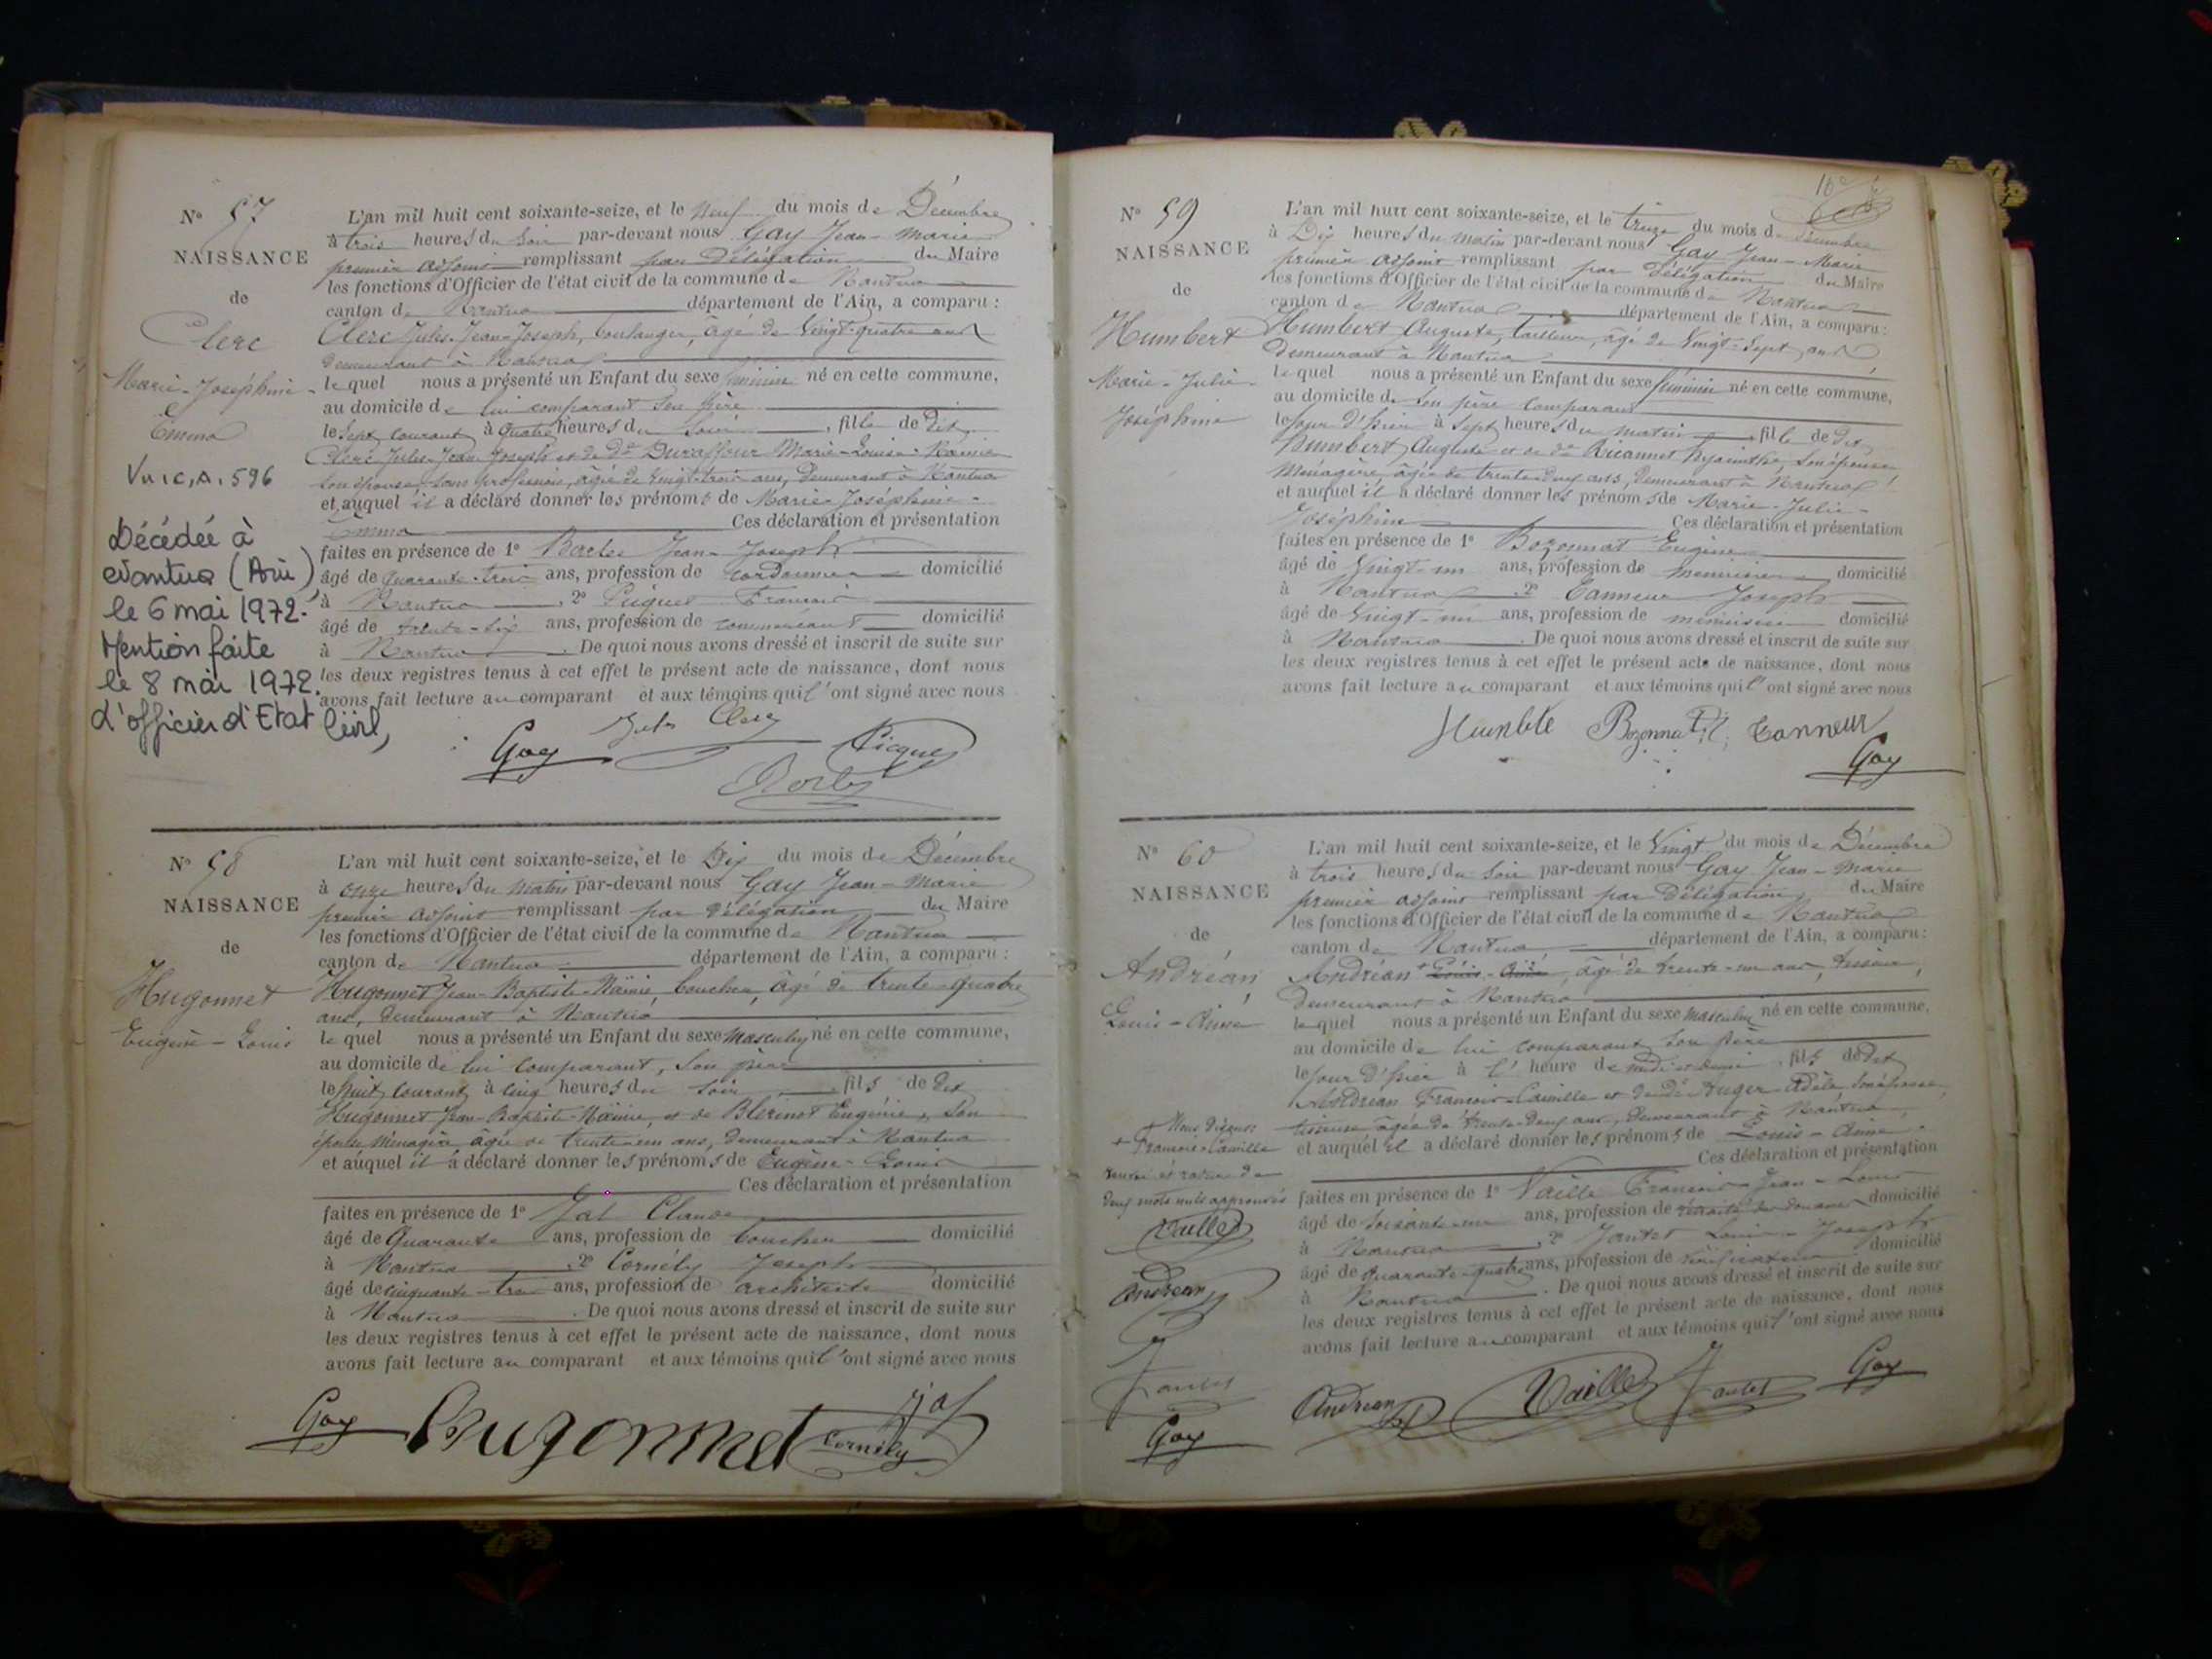 N° 57
NAISSANCE
de
Clerc
Marie-Joséphine-
Emma
Vu ic, A. 596
Décédée à
Nantua (Ain)
le 6 mai 1972.
Mention faite
le 8 mai 1972.
L'officier d'Etat Civil,
L'an mil huit cent soixante-seize, et le neuf du mois de Décembre
à trois heures du soir par-devant nous Gay Jean-Marie
premier adjoint remplissant par Délégation du Maire
les fonctions d'Officier de l'état civil de la commune de Nantua
canton de Nantua département de l'Ain, a comparu :
Clerc Jules-Jean-Joseph, boulanger, âgé de vingt-quatre ans
demeurant à Nantua
lequel nous a présenté un Enfant du sexe féminin né en cette commune,
au domicile de lui comparant son père
le sept courant à quatre heures du soir , fille de dit
Clerc Jules-Jean-Joseph et de de Duraffour Marie-Louise
son épouse, sans profession, âgée de vingt-trois ans, demeurant à Nantua
et auquel il a déclaré donner les prénoms de Marie-Joséphine-
Emma Ces déclaration et présentation
faites en présence de 1° Jean-Joseph
âgé de quarante-trois ans, profession de cordonnier domicilié
à Nantua , 2° Picquet François
âgé de trente-six ans, profession de commerçant domicilié
à Nantua . De quoi nous avons dressé et inscrit de suite sur
les deux registres tenus à cet effet le présent acte de naissance, dont nous
avons fait lecture au comparant et aux témoins qui l'ont signé avec nous
Gay Jules Clerc Picquet
N° 58
NAISSANCE
de
Hugonnet
Eugène-Louis
L'an mil huit cent soixante-seize, et le Dix du mois de Décembre
à onze heures du matin par-devant nous Gay Jean-Marie
premier adjoint remplissant par délégation du Maire
les fonctions d'Officier de l'état civil de la commune de Nantua
canton de Nantua département de l'Ain, a comparu :
Hugonnet Jean-Baptiste-Naimie, boucher, âgé de trente-quatre
ans, demeurant à Nantua
lequel nous a présenté un Enfant du sexe masculin né en cette commune,
au domicile de lui comparant, son père
le huit courant à cinq heures du soir , fils de dit
Hugonnet Jean-Baptiste-Naimie, et de Blerinot Eugénie, son
épouse, ménagère âgée de trente-un ans, demeurant à Nantua
et auquel il a déclaré donner les prénoms de Eugène-Louis
Ces déclaration et présentation
faites en présence de 1° Jal Claude
âgé de Quarante ans, profession de boucher domicilié
à Nantua , 2° Cornély Joseph
âgé de cinquante-trois ans, profession de architecte domicilié
à Nantua . De quoi nous avons dressé et inscrit de suite sur
les deux registres tenus à cet effet le présent acte de naissance, dont nous
avons fait lecture au comparant et aux témoins qui l'ont signé avec nous
Gay Hugonnet Cornély Jal
N° 59
NAISSANCE
de
Humbert
Marie-Julie-
Joséphine
L'an mil huit cent soixante-seize, et le treize du mois de Décembre
à Dix heures du matin par-devant nous Gay Jean-Marie
premier adjoint remplissant par Délégation du Maire
les fonctions d'Officier de l'état civil de la commune de Nantua
canton de Nantua département de l'Ain, a comparu :
Humbert Auguste, tailleur, âgé de vingt-sept ans
demeurant à Nantua
lequel nous a présenté un Enfant du sexe féminin né en cette commune,
au domicile de son père comparant
le jour d'hier à sept heures du matin , fille de dit
Humbert Auguste et de de Hyacinthe, son épouse
ménagère, âgée de trente-deux ans, demeurant à Nantua
et auquel il a déclaré donner les prénoms de Marie-Julie-
Joséphine Ces déclaration et présentation
faites en présence de 1° Bozonnat Eugène
âgé de vingt-un ans, profession de menuisier domicilié
à Nantua , 2° Tanneur Joseph
âgé de vingt-un ans, profession de menuisier domicilié
à Nantua . De quoi nous avons dressé et inscrit de suite sur
les deux registres tenus à cet effet le présent acte de naissance, dont nous
avons fait lecture au comparant et aux témoins qui l'ont signé avec nous
Humble Bozonnat Tanneur
Gay
N° 60
NAISSANCE
de
Andréan
Louis-Aimé
+ Nous disons
+ François-Camille
renvoi et rature de
deux mots nuls approuvés
Vaille
Andrean
Jantet
Gay
L'an mil huit cent soixante-seize, et le vingt du mois de Décembre
à trois heures du soir par-devant nous Gay Jean-Marie
premier adjoint remplissant par délégation du Maire
les fonctions d'Officier de l'état civil de la commune de Nantua
canton de Nantua département de l'Ain, a comparu :
Andréan + Louis-Aimé, âgé de trente-un ans, tisseur,
demeurant à Nantua
lequel nous a présenté un Enfant du sexe masculin né en cette commune,
au domicile de lui comparant son père
le jour d'hier à l'heure de midi et demi , fils de dit
Andréan François-Camille et de de Auger Adèle son épouse,
tisseuse âgée de trente-deux ans, demeurant à Nantua
et auquel il a déclaré donner les prénoms de Louis-Aimé
Ces déclaration et présentation
faites en présence de 1° Vaille François-Jean-Louis
âgé de soixante-un ans, profession de retraité des douanes domicilié
à Nantua , 2° Jantet Louis-Joseph
âgé de quarante-quatre ans, profession de vérificateur domicilié
à Nantua . De quoi nous avons dressé et inscrit de suite sur
les deux registres tenus à cet effet le présent acte de naissance, dont nous
avons fait lecture au comparant et aux témoins qui l'ont signé avec nous
Andrean Vaille Jantet Gay